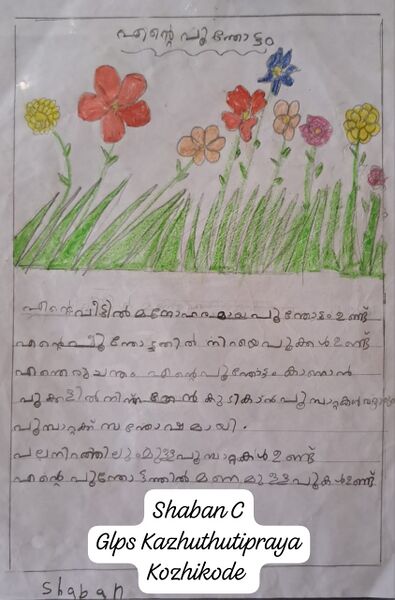 എന്റെ പൂന്തോട്ടം
എന്റെ വീട്ടിൽ മനോഹരമായ പൂന്തോട്ടം ഉണ്ട്
എന്റെ പൂന്തോട്ടത്തിൽ നിറയെ പൂക്കൾ ഉണ്ട്
എന്തൊരു ചന്തം എന്റെ പൂന്തോട്ടം കാണാൻ
പൂക്കളിൽ നിന്ന് തേൻ കുടിക്കാൻ പൂമ്പാറ്റകൾ
പൂമ്പാറ്റക്ക് സന്തോഷമായി.
പല നിറത്തിലും മുള്ള പൂമ്പാറ്റകൾ ഉണ്ട്
എന്റെ പൂന്തോട്ടത്തിൽ മണമുള്ള പൂകൾ ഉണ്ട്
Shaban C
Glps Kazhuthutipraya
Kozhikode
Shaban